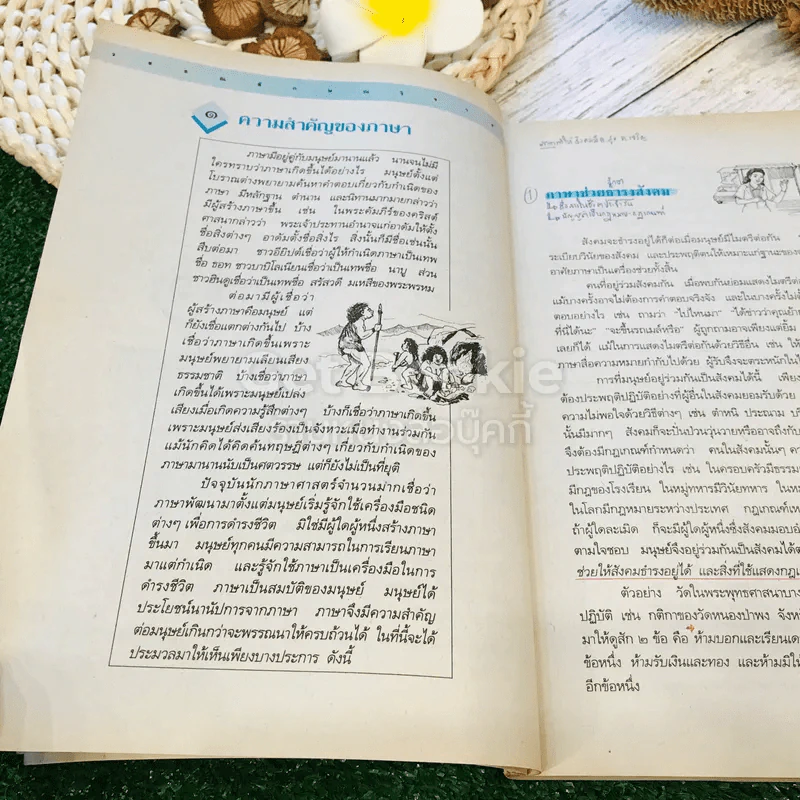 ๑ ความสำคัญของภาษา
ภาษามีอยู่คู่กับมนุษย์มานานแล้ว นานจนไม่มี
ใครทราบว่าภาษาเกิดขึ้นได้อย่างไร มนุษย์ตั้งแต่
โบราณต่างพยายามค้นหาคำตอบเกี่ยวกับกำเนิดของ
ภาษา มีหลักฐาน ตำนาน และนิทานมากมายกล่าวว่า
มีผู้สร้างภาษาขึ้น เช่น ในพระคัมภีร์ของคริสต์
ศาสนากล่าวว่า พระเจ้าประทานอำนาจแก่อาดัมให้ตั้ง
ชื่อสิ่งต่างๆ อาดัมตั้งชื่อสิ่งไร สิ่งนั้นก็มีชื่อเช่นนั้น
สืบต่อมา ชาวอียิปต์เชื่อว่าผู้ให้กำเนิดภาษาเป็นเทพ
ชื่อ ธอท ชาวบาบิโลเนียนเชื่อว่าเป็นเทพชื่อ นาบู ส่วน
ชาวฮินดูเชื่อว่าเป็นเทพชื่อ สรัสวดี มเหสีของพระพรหม
ต่อมามีผู้เชื่อว่า
ผู้สร้างภาษาคือมนุษย์ แต่
ก็ยังเชื่อแตกต่างกันไป บ้าง
เชื่อว่าภาษาเกิดขึ้นเพราะ
มนุษย์พยายามเลียนเสียง
ธรรมชาติ บ้างเชื่อว่าภาษา
เกิดขึ้นได้เพราะมนุษย์เปล่ง
เสียงเมื่อเกิดความรู้สึกต่างๆ บ้างก็เชื่อว่าภาษาเกิดขึ้น
เพราะมนุษย์ส่งเสียงร้องเป็นจังหวะเมื่อทำงานร่วมกัน
แม้นักคิดได้คิดค้นทฤษฎีต่างๆ เกี่ยวกับกำเนิดของ
ภาษามานานนับเป็นศตวรรษ แต่ก็ยังไม่เป็นที่ยุติ
ปัจจุบันนักภาษาศาสตร์จำนวนมากเชื่อว่า
ภาษาพัฒนามาตั้งแต่มนุษย์เริ่มรู้จักใช้เครื่องมือชนิด
ต่างๆ เพื่อการดำรงชีวิต มิใช่มีผู้ใดผู้หนึ่งสร้างภาษา
ขึ้นมา มนุษย์ทุกคนมีความสามารถในการเรียนภาษา
มาแต่กำเนิด และรู้จักใช้ภาษาเป็นเครื่องมือในการ
ดำรงชีวิต ภาษาเป็นสมบัติของมนุษย์ มนุษย์ได้
ประโยชน์นานัปการจากภาษา ภาษาจึงมีความสำคัญ
ต่อมนุษย์เกินกว่าจะพรรณนาให้ครบถ้วนได้ ในที่นี้จะได้
ประมวลมาให้เห็นเพียงบางประการ ดังนี้
Get Bookie
ร้านหนังสือบุ๊คกี้
① ภาษาช่วยธำรงสังคม
สังคมจะธำรงอยู่ได้ก็ต่อเมื่อมนุษย์มีไมตรีต่อกัน
ระเบียบวินัยของสังคม และประพฤติตนให้เหมาะแก่ฐานะของ
อาศัยภาษาเป็นเครื่องช่วยทั้งสิ้น
คนที่อยู่ร่วมสังคมกัน เมื่อพบกันย่อมแสดงไมตรีต่อ
แม้บางครั้งอาจไม่ต้องการคำตอบจริงจัง และในบางครั้งไม่
ตอบอย่างไร เช่น ถามว่า "ไปไหนมา" "ได้ข่าวว่าคุณย้าย
ที่นี่ได้นะ" "จะขึ้นรถเมล์หรือ" ผู้ถูกถามอาจเพียงแต่ยิ้ม
เลยก็ได้ แม้ในการแสดงไมตรีต่อกันด้วยวิธีอื่น เช่น ให้
ภาษาสื่อความหมายกำกับไปด้วย ผู้รับจึงจะตระหนักใน
การที่มนุษย์อยู่ร่วมกันเป็นสังคมได้นี้ เพียง
ต้องประพฤติปฏิบัติอย่างที่ผู้อื่นในสังคมยอมรับด้วย
ความไม่พอใจด้วยวิธีต่างๆ เช่น ตำหนิ ประณาม
นั้นมีมากๆ สังคมก็จะปั่นป่วนวุ่นวายหรืออาจถึงกับ
จึงต้องมีกฎเกณฑ์กำหนดว่า คนในสังคมนั้นๆ
ประพฤติปฏิบัติอย่างไร เช่น ในครอบครัวมีธรรม
มีกฎของโรงเรียน ในหมู่ทหารมีวินัยทหาร ใน
ในโลกมีกฎหมายระหว่างประเทศ กฎเกณฑ์
ถ้าผู้ใดละเมิด ก็จะมีผู้ใดผู้หนึ่งซึ่งสังคมมอบ
ตามใจชอบ มนุษย์จึงอยู่ร่วมกันเป็นสังคมได้
ช่วยให้สังคมธำรงอยู่ได้ และสิ่งที่ใช้แสดงกฎ
ตัวอย่าง วัดในพระพุทธศาสนาบาง
ปฏิบัติ เช่น กติกาของวัดหนองป่าพง จัง
มาให้ดูสัก ๒ ข้อ คือ ห้ามบอกและเรียน
ข้อหนึ่ง ห้ามรับเงินและทอง และห้ามมิให้
อีกข้อหนึ่ง